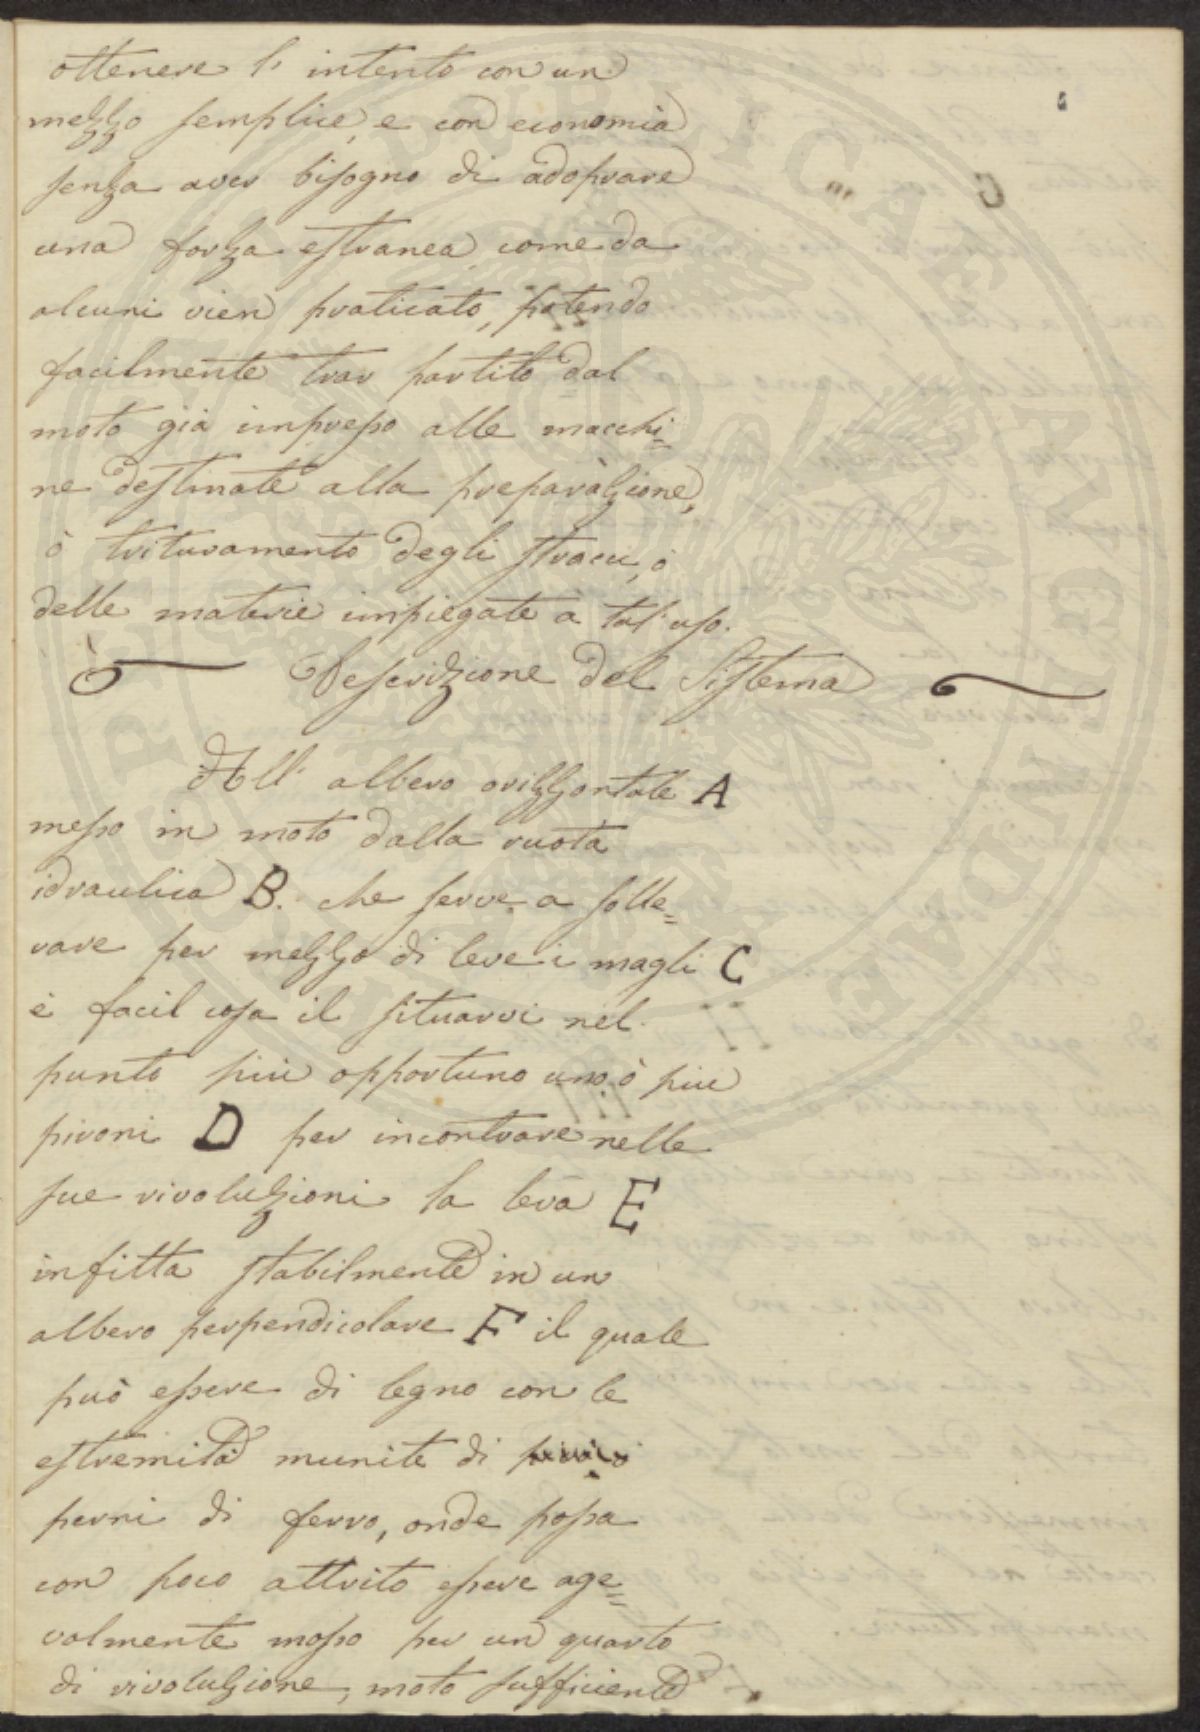 ottenere l' intento con un
mezzo semplice, e con economia
senza aver bisogno di adoprare
una forza estranea come da
alcuni vien praticato, potendo
facilmente trar partito dal
moto già impresso alle macchi=
ne destinate alla preparazione,
ò trituramento degli stracci, ò
delle materie impiegate à tal' uso.
Descrizione del Sistema
All' albero orizzontale A
messo in moto dalla ruota
idraulica B. che serve a solle=
vare per mezzo di leve i magli C
è facil cosa il situarvi nel
punto più opportuno uno, ò più
pironi D per incontrare nelle
sue rivoluzioni la leva E
infitta stabilmente in un
albero perpendicolare F il quale
può essere di legno con le
estremità munite di
perni di ferro, onde possa
con poco attrito essere age=
volmente mosso per un quarto
di rivoluzione, moto sufficiente